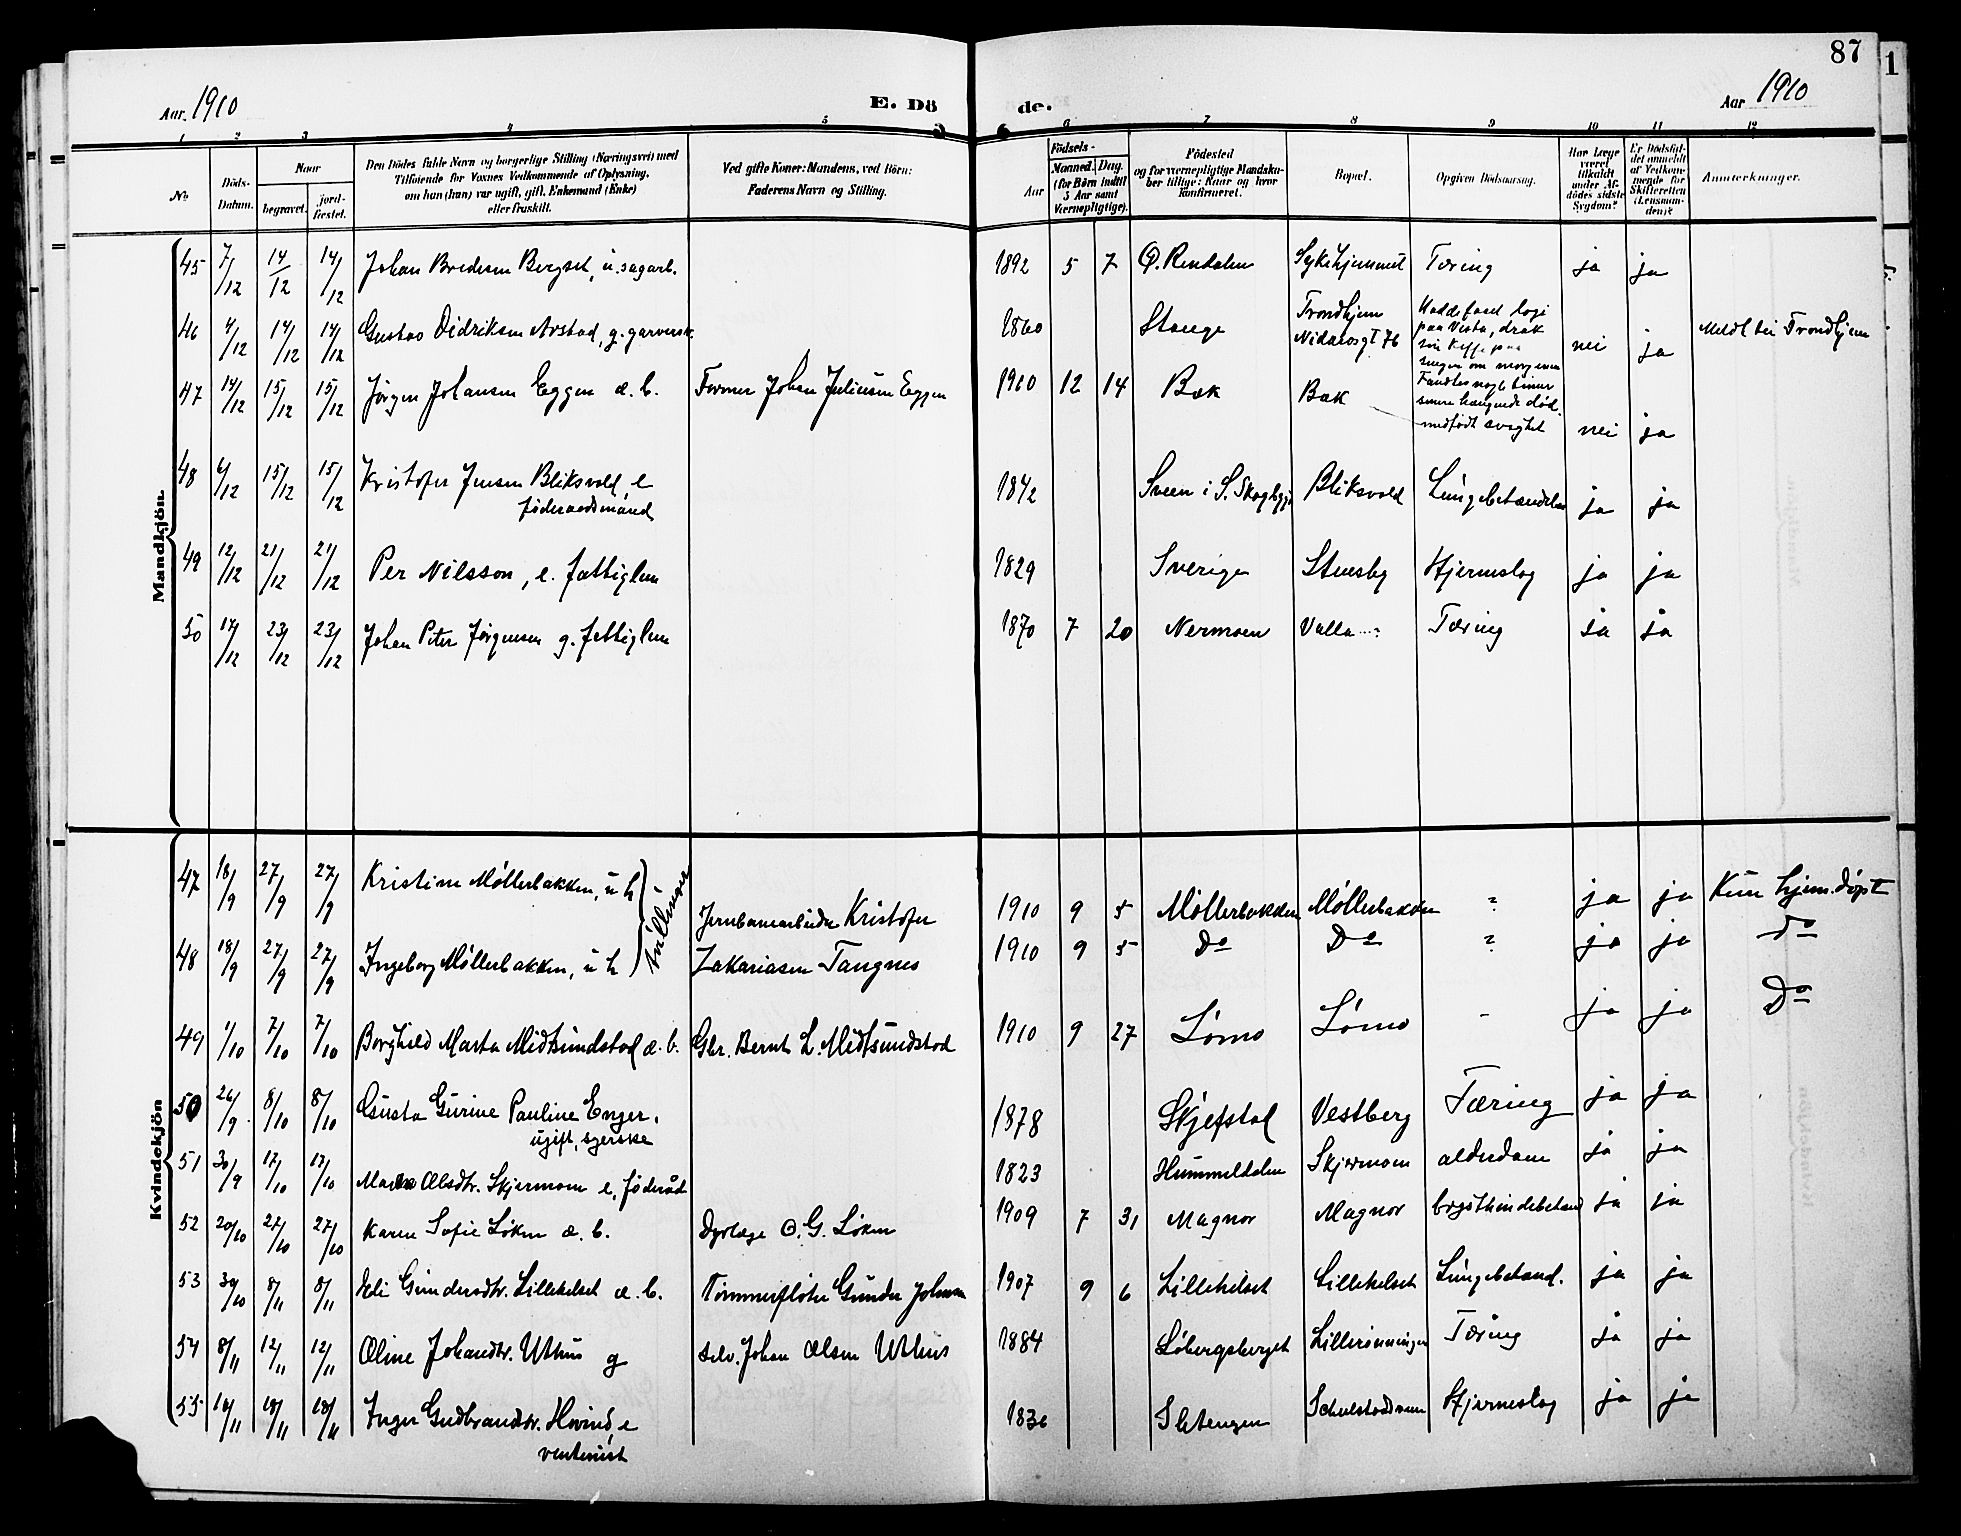 87
1
Aar. 1910
E. Dö
de.
Aar 1910
1 2 3 4 5 6 7 8 9 10 11 12
No
Döds-Datum.
Naar
begravet.
jord-fæstet.
Den Dödes fulde Navn og borgerlige Stilling (Næringsvei) med
Tilföiende for Voxnes Vedkommende af Oplysning,
om han (hun) var ugift, gift, Enkemand (Enke)
eller fraskilt.
Ved gifte Koner: Mandens, ved Börn:
Faderens Navn og Stilling.
Födsels-
Aar
Maaned. Dag.
(for Börn indtil
5 Aar samt
Værnepligtige).
Födested
og for værnepligtige Mandska-
ber tillige: Naar og hvor
konfirmeret.
Bopæl.
Opgiven Dödsaarsag.
Har Læge
været
tilkaldt
under Af-
dödes sidste
Sygdom?
Er Dödsfal-
det anmeldt
af Vedkom-
mende for
Skifteretten
(Lensman-
den)?
Anmærkninger.
Mandkjön.
45 7/12 14/12 14/12 Johan Bredesen Bergset, u. sagarb. 1892 5 7 Ø. Rendalen Sykehjemmet Tæring ja ja
46 4/12 14/12 14/12 Gustav Didriksen Arstad, g. garversk. 1860 Stange Trondhjem Nidarosgt 76 Hadde faaet logi
paa Vesta, drak
sin kaffe paa
sengen om morgenen
Fandtes nogle timer
senere hængende død.
nei ja Meldt bei Trondhjem
47 14/12 15/12 15/12 Jørgen Johansen Eggen æ. b. Former Johan Juliusen Eggen 1910 12 14 Bæk Bæk medfødt svaghet nei ja
48 6/12 15/12 15/12 Kristofer Jensen Bliksvold, e
føderaadsmand
1842 Sveen i S. Skogbygd Bliksvold Lungebetændelse ja ja
49 12/12 21/12 21/12 Per Nilsson, e. fattiglem 1829 Sverige Stensby Hjerneslag ja ja
50 17/12 23/12 23/12 Johan Peter Jørgensen g. fattiglem 1870 7 20 Nermoen Valla Tæring ja ja
Kvindekjön
47 18/9 27/9 27/9 Kristine Møllerbakken, u h 1910 9 5 Møllerbakken Møllerbakken ? ja ja Kun hjem. døpt
tvillinger
Jernbanearbeider Kristofer
48 18/9 27/9 27/9 Ingeborg Møllerbakken, u h Zakariasen Tangnes 1910 9 5 Do Do ? ja ja Do
49 1/10 7/10 7/10 Borghild Marta Midtsundstad æ. b. Gbr. Bernt L. Midtsundstad 1910 9 27 Lømo Lømo - ja ja Do
50 26/9 8/10 8/10 Gusta Gurine Pauline Enger.
ugift, syerske
1878 Skjefstad Vestberg Tæring ja ja
51 30/9 17/10 17/10 Maren Olsdtr. Skjærmoen e, føderåd 1823 Hummeldalen Skjærmoen alderdom ja ja
52 20/10 27/10 27/10 Karen Sofie Løken æ. b. Dyrlæge O. G. Løken 1909 7 31 Magnor Magnor brysthindebetænd ja ja
53 30/10 8/11 8/11 Eli Gundersdtr. Lillekelset æ. b. Tømmerfløter Gunder Johnsen 1907 9 6 Lillekelset Lillekelset Lungebetænd. ja ja
54 8/11 12/11 12/11 Oline Johandtr. Uthus g selv. Johan Olsen Uthus 1884 Løbergsberget Lillerønningen Tæring ja ja
55 10/11 18/11 18/11 Inger Gudbrandsdtr. Hovind, e 1836 Sletengen Schulstadsveen Hjerneslag ja ja